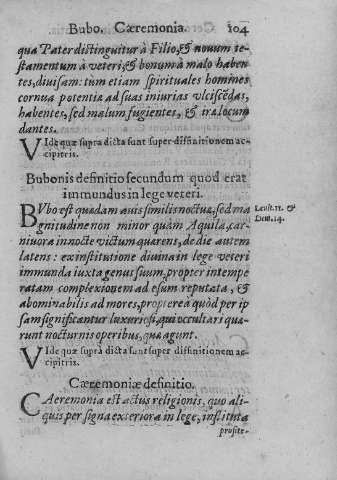 Bubo. Cæremonia. 104
qua Pater distinguitur à Filio, & nouum te-
stamentum à veteri, & bonum à malo haben
tes, diuisam: tum etiam spirituales homines
cornua potentiæ ad suas iniurias vlciscẽdas,
habentes, sed malum fugientes, & iræ locum
dantes.
VIde quæ supra dicta sunt super diffinitionem ac-
cipitris.
Bubonis definitio secundum quod erat
immundus in lege veteri.
BVbo est quædam auis similis noctuæ, sed ma
gnitudine non minor quàm Aquila, car-
niuora in nocte victum quærens, de die autem
latens: ex institutione diuina in lege veteri
immunda iuxta genus suum, propter intempe
ratam complexionem ad esum reputata, &
abominabilis ad mores, propterea quòd per ip
sam significantur luxuriosi, qui occultari quæ-
runt nocturnis operibus, quæ agunt.
Leuit. 11. &
Deut. 14.
VIde quæ suprà dicta sunt super diffinitionem ac-
cipitris.
Cæremoniæ definitio.
CAeremonia est actus religionis, quo ali-
quis per signa exteriora in lege, instituta
profite-